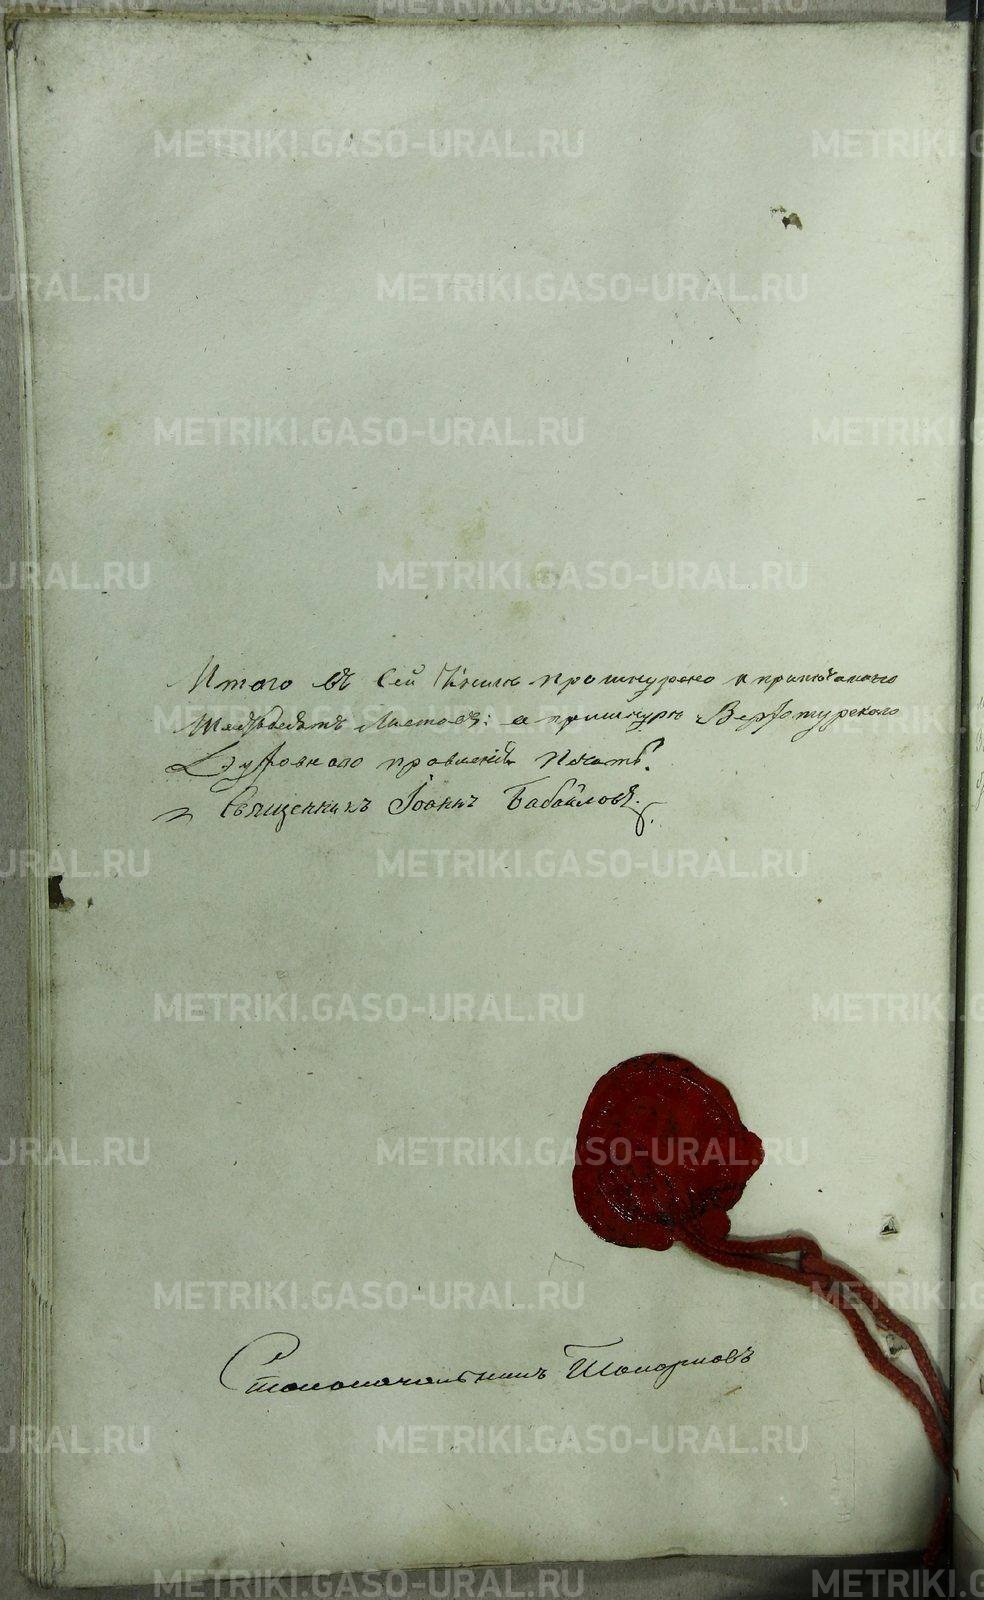 METRIKI.GASO-URAL.RU
Итого въ Сей Книге прошнурено и
листовъ: а при шнуре Верхотурского
Духовнаго правленія Печать.
Священникъ Іоаннъ Бабайловъ.
Столоначальникъ